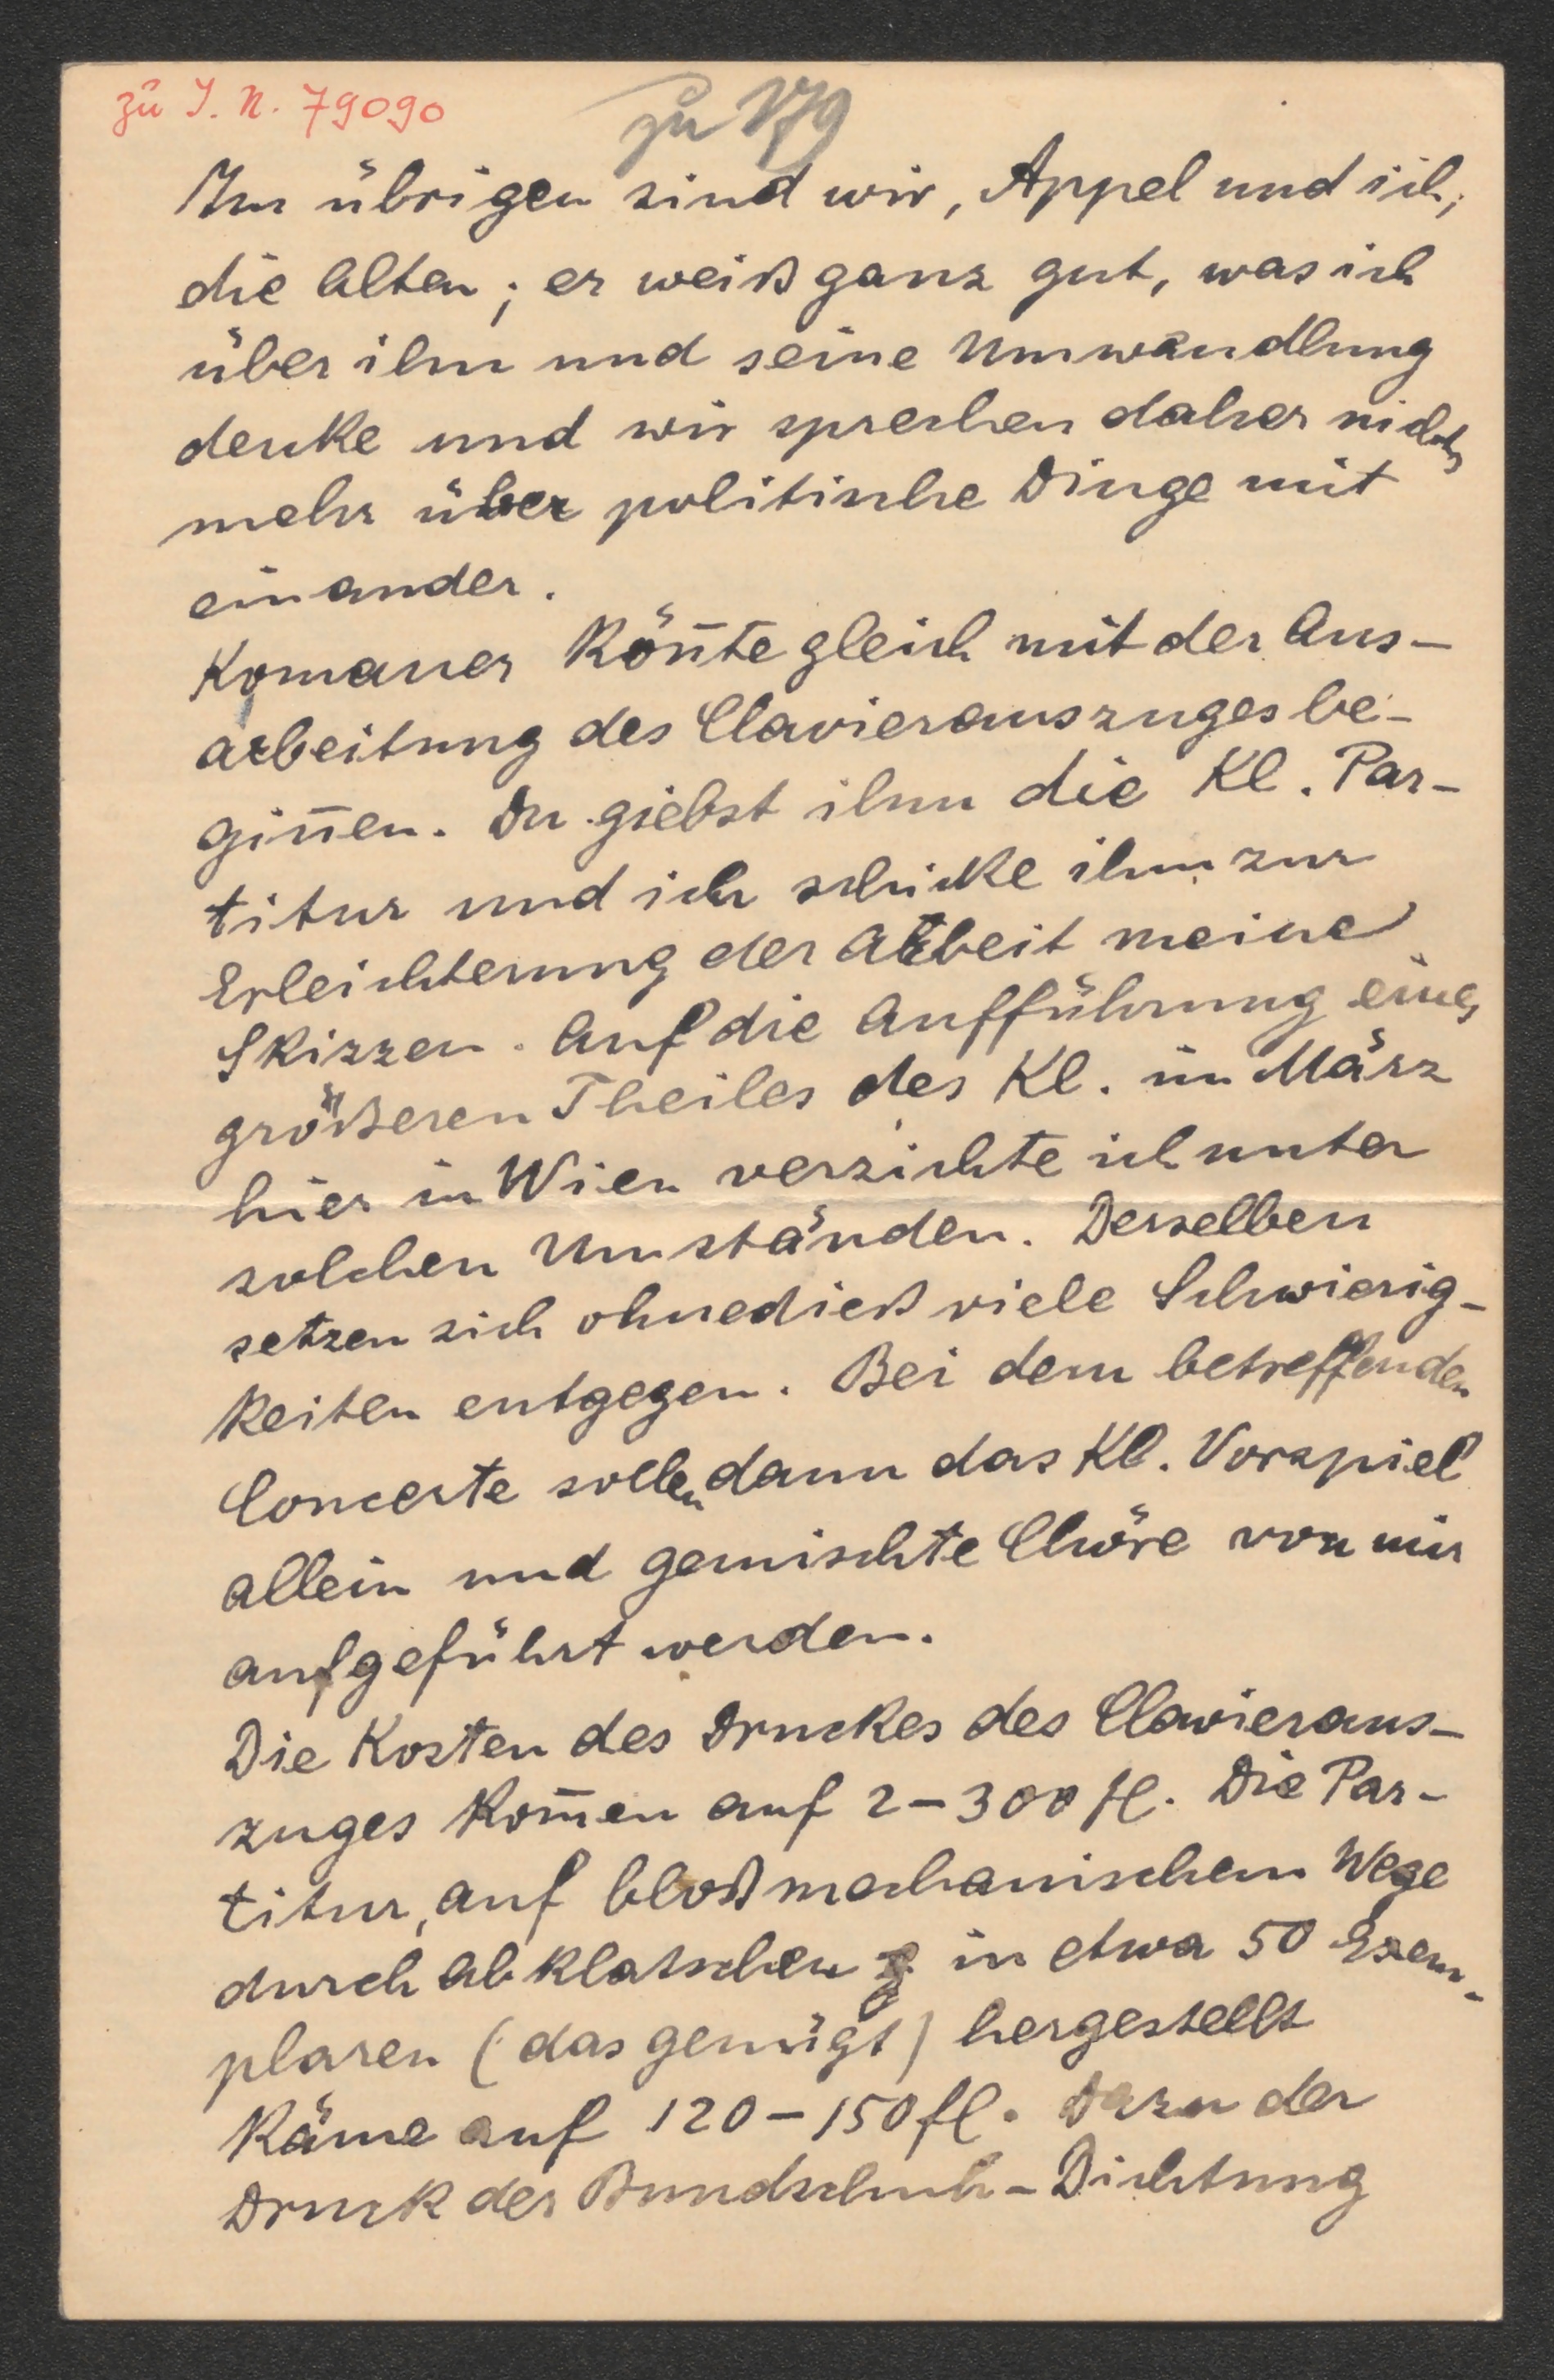 zu I. N. 79090
zu 179
Im übrigen sind wir, Appel und ich,
die Alten; er weiß ganz gut, was ich
über ihn und seine Umwandlung
denke und wir sprechen daher nichts
mehr über politische Dinge mit
einander.
Komauer kön̄te gleich mit der Aus-
arbeitung des Clavierauszuges be-
gin̄en. Du giebst ihm die Kl. Par-
titur und ich schicke ihm zur
Erleichterung der Arbeit meine
Skizzen. Auf die Aufführung eines
größeren Theiles des Kl. im März
hier in Wien verzichte ich unter
solchen Umständen. Derselben
setzen sich ohnedieß viele Schwierig-
keiten entgegen. Bei dem betreffenden
Concerte sollen dann das Kl. Vorspiel
allein und gemischte Chöre von mir
aufgeführt werden.
Die Kosten des Druckes des Clavieraus-
zuges kom̄en auf 2-300 fl. Die Par-
titur, auf bloß mechanischem Wege
durch Abklatschen in etwa 50 Exem-
plaren (das genügt) hergestellt
käme auf 120-150 fl. Dazu der
Druck der Bundschuh-Dichtung